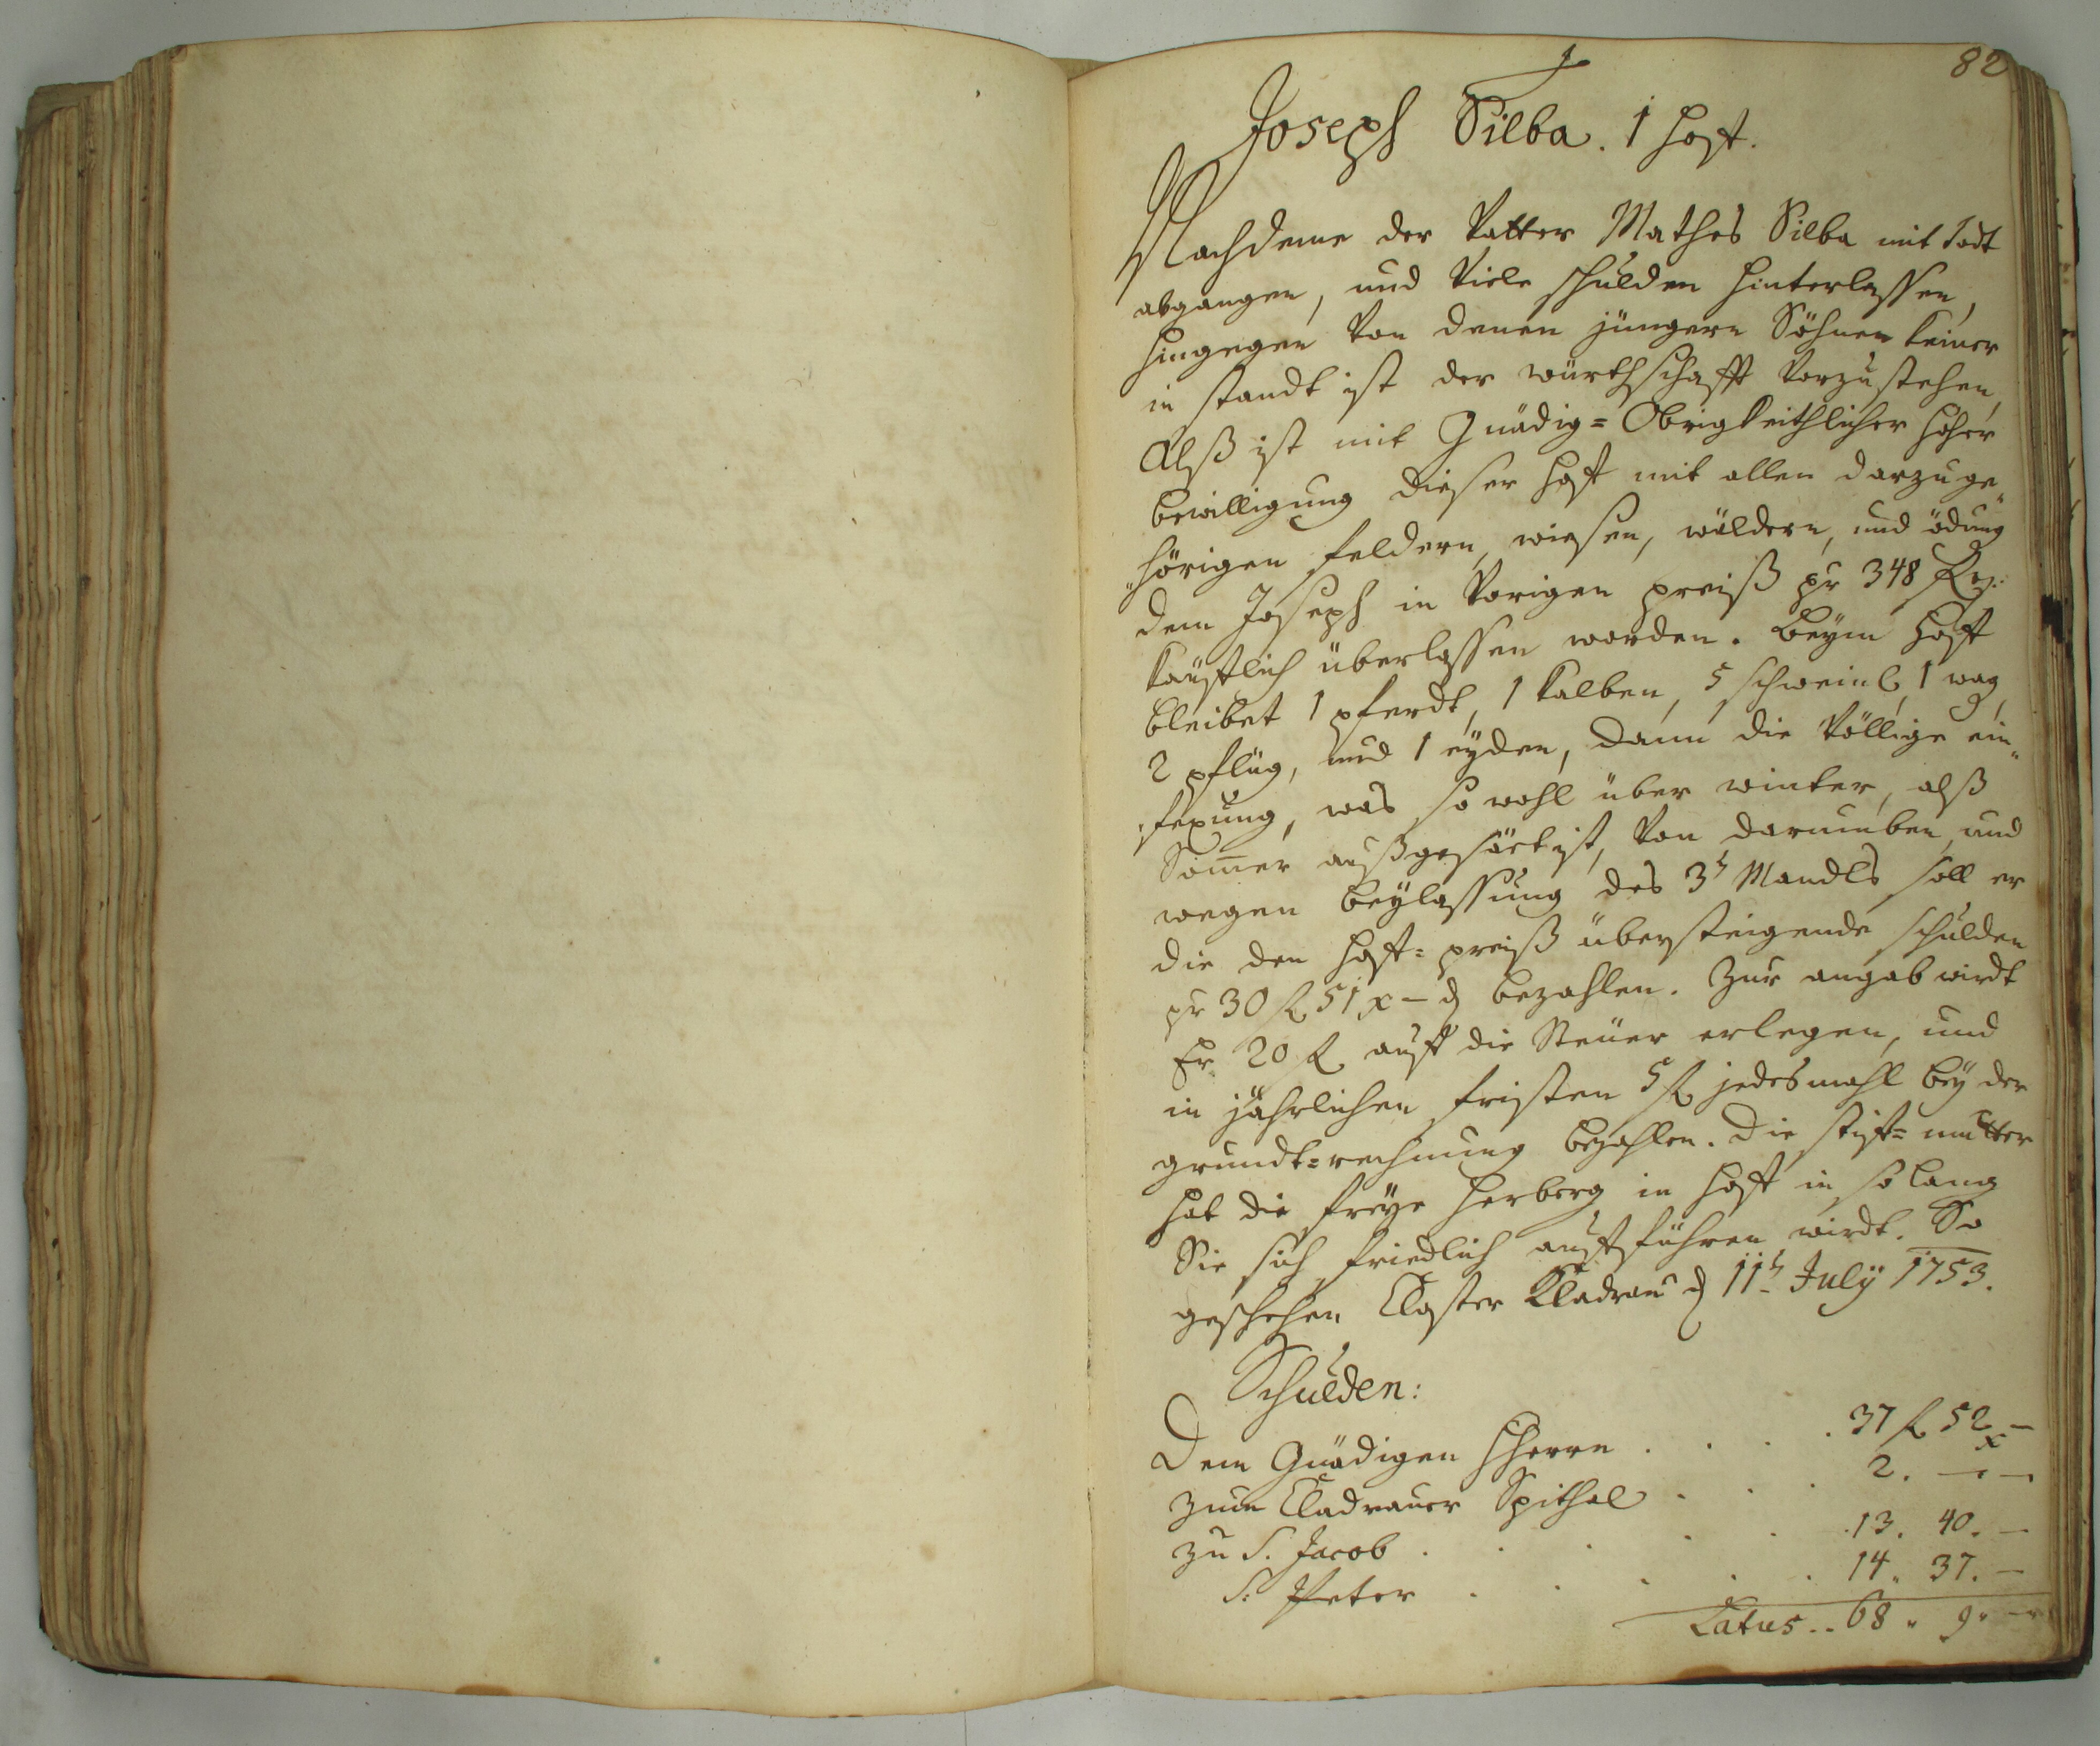 82
Joseph Silba. 1 Hoff.
Nachdeme der Vatter Mathes Silba mit todt
abgangen, und Viele schulden hinterlassen,
hingegen Von denen jüngern Söhnen keiner
in standt ist der würthschafft Vorzustehen,
Alß ist mit Gnädig=Obrigkeithlicher hoher
bewilligung dieser Hoff mit allen darzuge„
„hörigen feldern, wiesen, wäldern, und ödung
dem Joseph in Vorigen preiß pr 348 f
käufflich überlassen worden. Beym Hoff
bleibet 1 pferdt, 1 kalben, 5 schweinl, 1 wag,
2 pflüg, und 1 eyden, dann die Völlige ein„
„fexung, was so wohl über winter, alß
Som̄er außgesäet ist, Von darumben, und
wegen beylassung des 3t Mandls soll er
die den Hoff=preiß übersteigende schulden
pr 30 f 51 x – d bezahlen. Zur angab wirdt
Er 20 f auff die Steüer erlegen, und
in jährlichen fristen 5 f jedesmahl bey der
grundt=rechnung bezahlen. Die stieff=mutter
hat die freye herberg in Hoff in so lang
Sie sich friedlich aufführen wirdt. So
geschehen Closter Kladrau d 11t July 1753.
Schulden:
Dem Gnädigen Herrn . . . . 37 f 52 x –
zum Cladrauer Spithal . . . 2. – –
zu S. Jacob . . . . . 13. 40. –
S. Peter . . . . . 14. 37. –
Latus .. 68 . 9. –